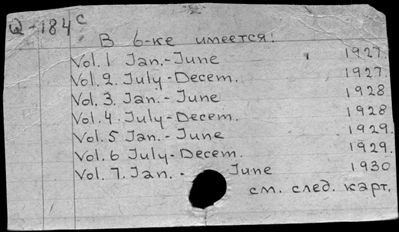 Q-184c
В б-ке имеется!
Vol. 1 Jan.-June 1927.
Vol. 2. July-Decem. 1927.
Vol. 3. Jan.-June 1928
Vol. 4. July-Decem. 1928
Vol. 5 Jan.-June 1929.
Vol. 6 July-Decem. 1929.
Vol. 7. Jan. - June 1930
см. след. карт.